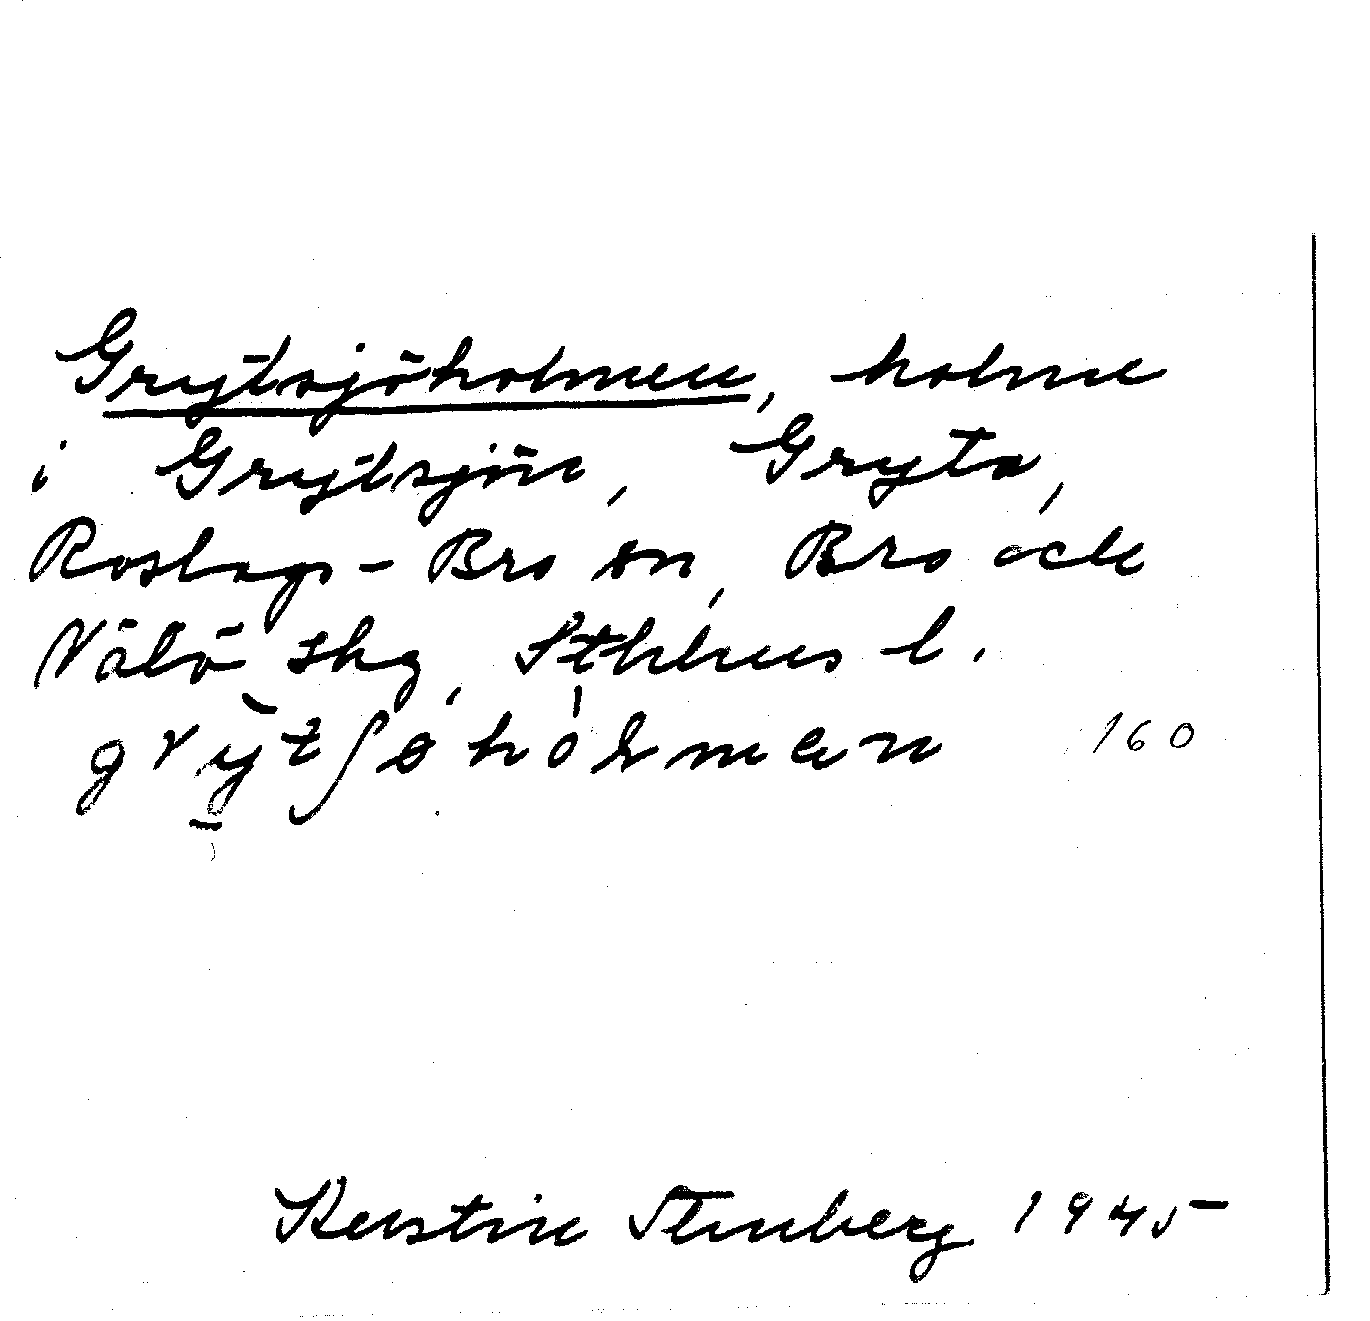 Grytsjöholmen, holme
i Grytsjön, Gryta,
Roslags-Bro sn, Bro och
Vätö skg, Sthlms l.
grỳtʃøhòlmαn 160
Kerstin Stenberg 1945